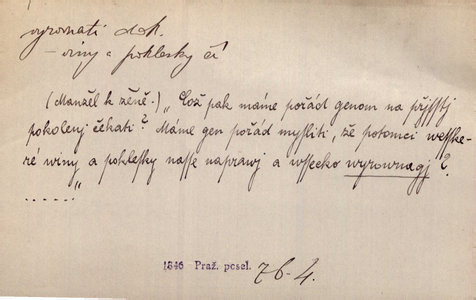 vyrovnati dok.
– viny a poklesky čí
(Manžel k ženě.) „Což pak máme pořád genom na přjsstj
pokolenj čekati? Máme gen pořád mysliti, že potomci wesske-
ré winy a poklesky nasse naprawj a wssecko wyrownagj?
......"
1846 Praž. posel. 76-4.